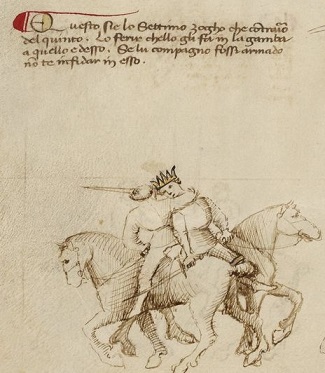 Questo sie lo Settimo zogho che
del quinto. Lo ferir chello gli fa in la gamba
a quello e desso. Se lu compagno fossi armado
nō te infidar in esso.